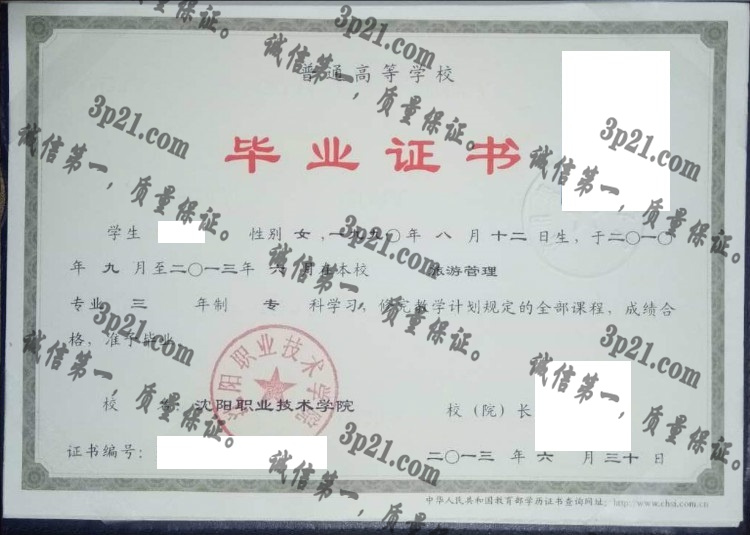 普通高等学校
毕业证书
学生 性别 女，一九九〇年 八 月 十二 日生，于二〇一〇
年 九 月至二〇一三年 六 月在本校 旅游管理
专业 三 年制 专 科学习，修完教学计划规定的全部课程，成绩合
格，准予毕业。
校 名：沈阳职业技术学院 校（院）长
证书编号： 二〇一三 年 六 月 三十 日
中华人民共和国教育部学历证书查询网址：http://www.chsi.com.cn
沈阳职业技术学院
3p21.com
诚信第一，质量保证。
3p21.com
诚信第一，质量保证。
3p21.com
诚信第一，质量保证。
3p21.com
诚信第一，质量保证。
3p21.com
诚信第一，质量保证。
3p21.com
诚信第一，质量保证。
3p21.com
诚信第一，质量保证。
3p21.com
诚信第一，质量